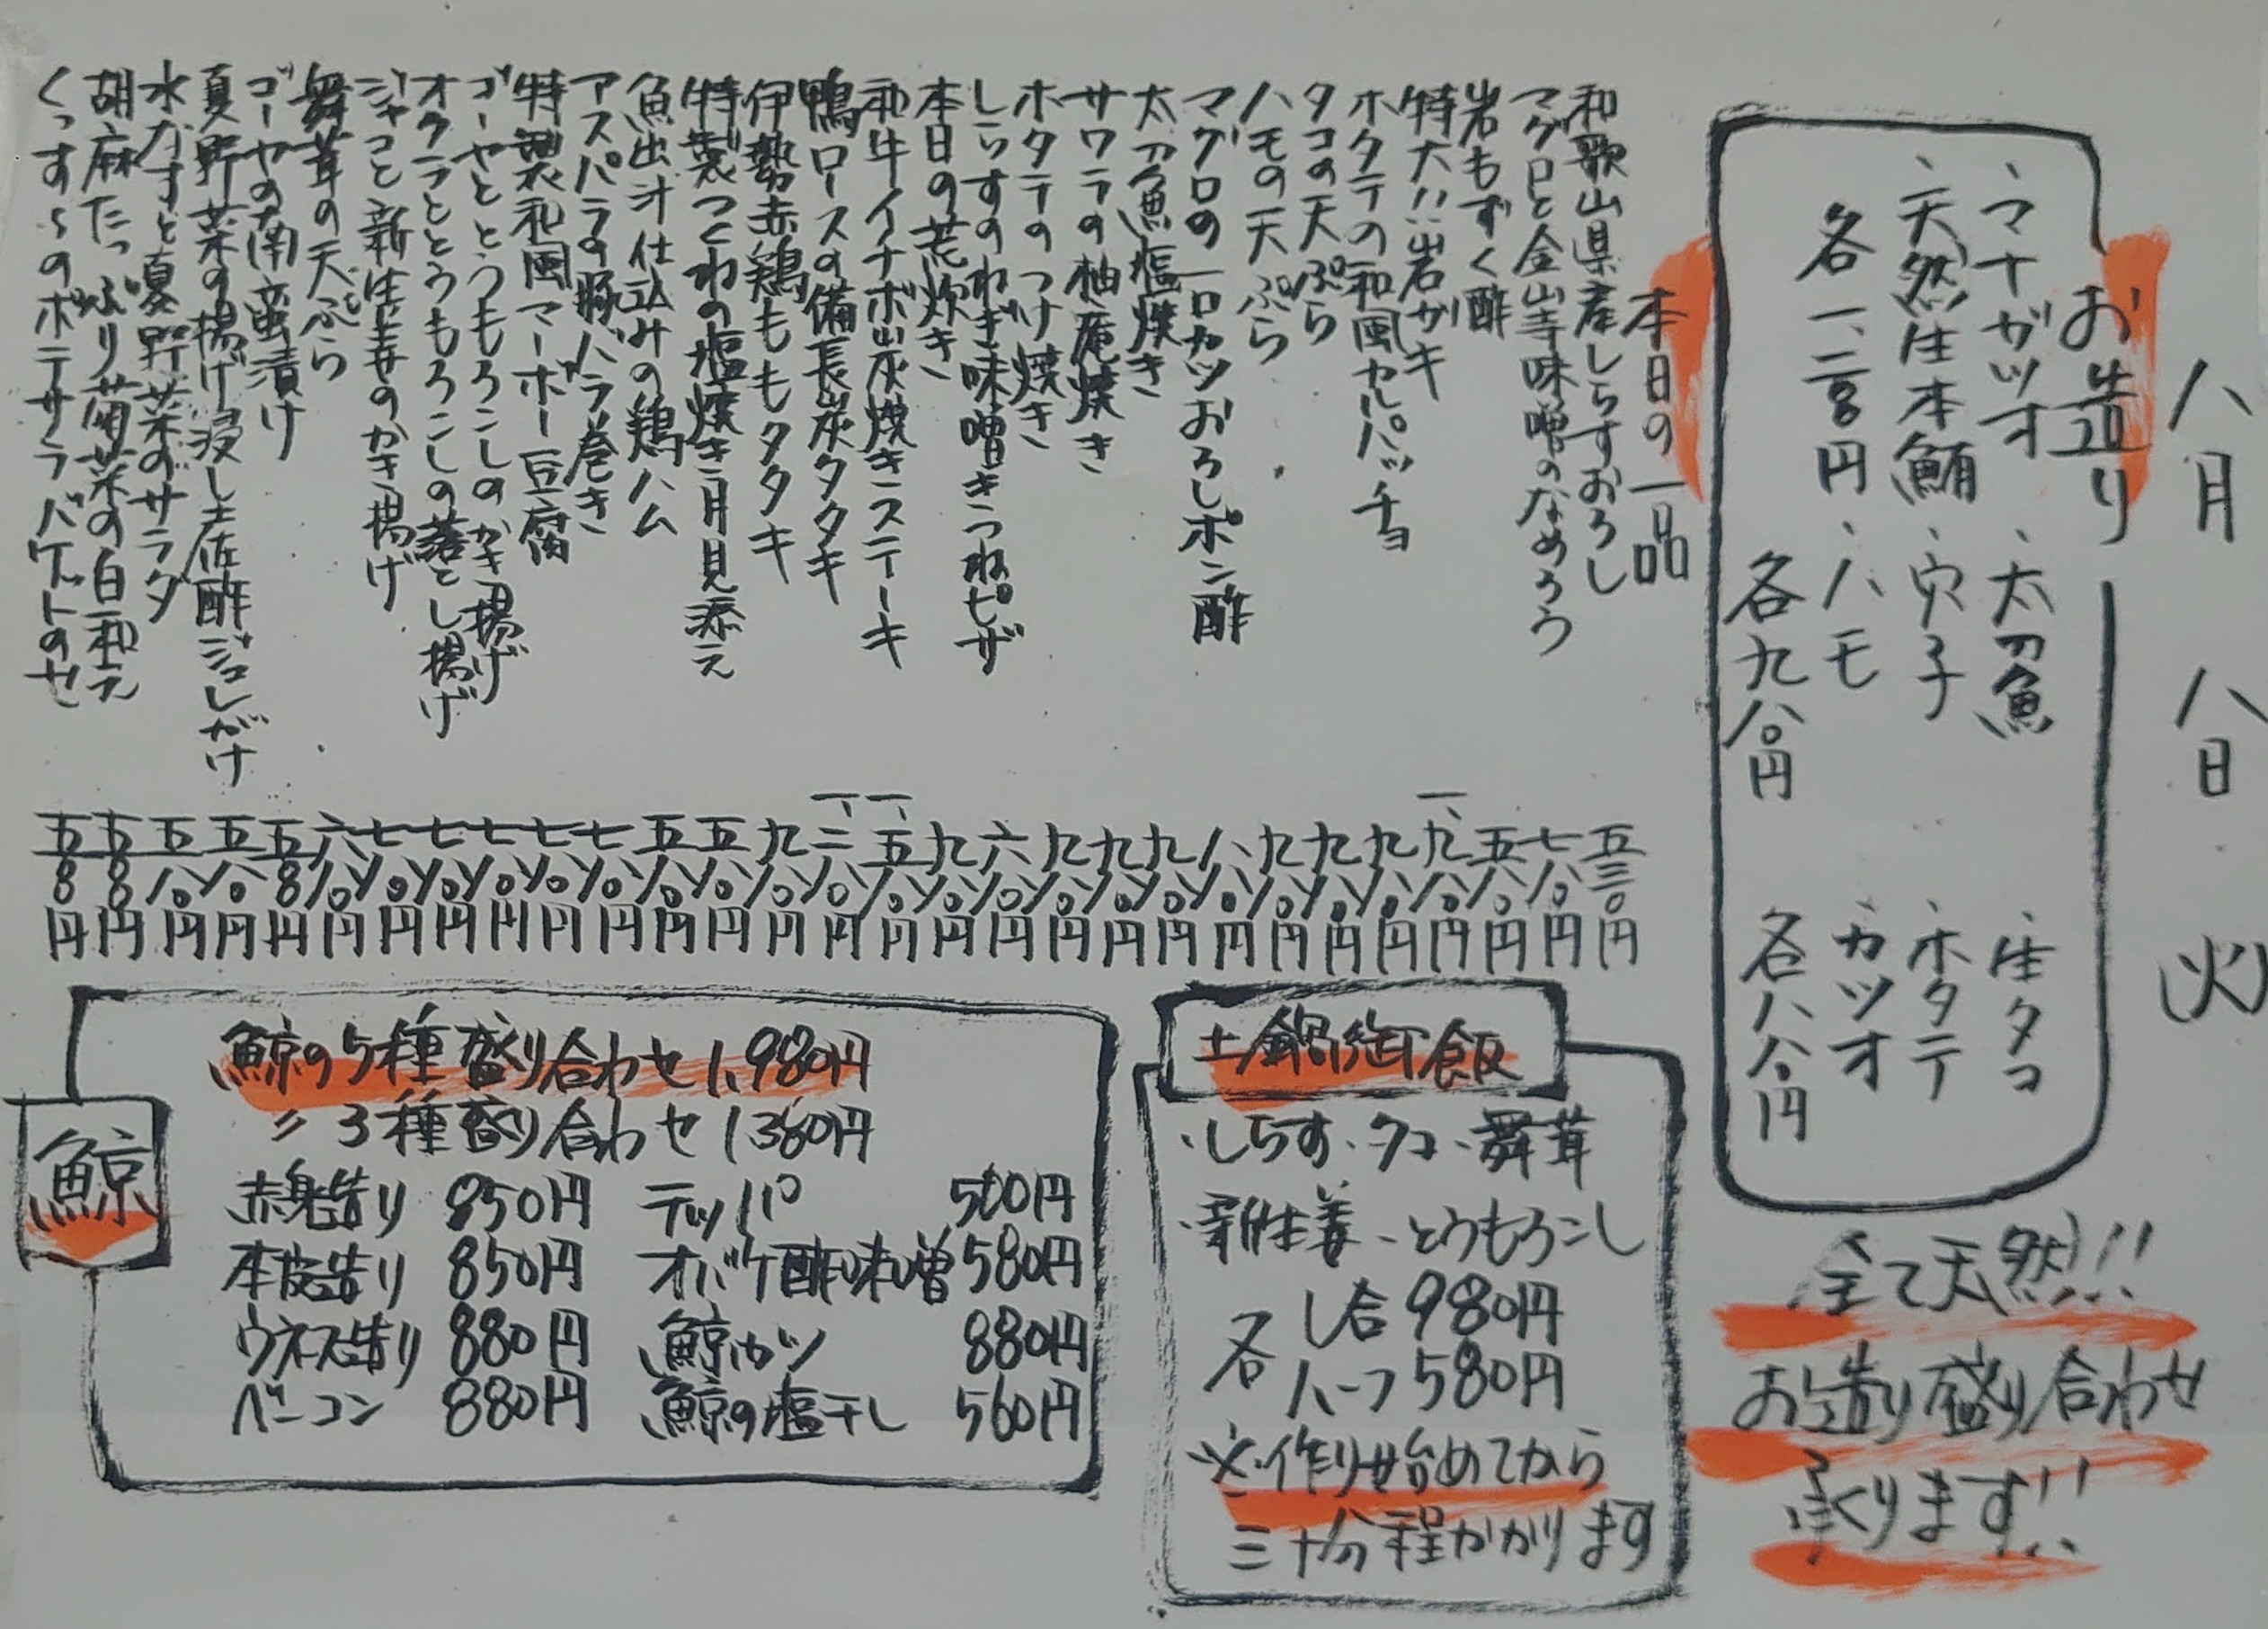 八月八日火
お造り
、マナガツオ
、天然生本鮪
各一、二八〇円
、太刀魚
、穴子
、ハモ
各九八〇円
、生タコ
、ホタテ
、カツオ
各八八〇円
全て天然!!
お造り盛り合わせ
承ります!!
本日の一品
和歌山県産しらすおろし 五三〇円
マグロと金山寺味噌のなめろう 七八〇円
岩もずく酢 五八〇円
特大!!岩ガキ 一、九八〇円
ホタテの和風カルパッチョ 九八〇円
タコの天ぷら 九八〇円
ハモの天ぷら 九八〇円
マグロの一口カツおろしポン酢 八八〇円
太刀魚塩焼き 九八〇円
サワラの柚庵焼き 九八〇円
ホタテのつけ焼き 九八〇円
しらすのねぎ味噌きつねピザ 六八〇円
本日の荒炊き 九八〇円
和牛イチボ炭焼きステーキ 一、五八〇円
鴨ロースの備長炭タタキ 一、二八〇円
伊勢赤鶏ももタタキ 九八〇円
特製つくねの塩焼き月見添え 五八〇円
魚出汁仕込みの鶏ハム 五八〇円
アスパラの豚バラ巻き 七八〇円
特製和風マーボー豆腐 七八〇円
ゴーヤととうもろこしのかき揚げ 七八〇円
オクラととうもろこしの落とし揚げ 七八〇円
ジャコと新生姜のかき揚げ 七八〇円
舞茸の天ぷら 六八〇円
ゴーヤの南蛮漬け 五八〇円
夏野菜の揚げ浸し土佐酢ジュレがけ 五八〇円
水なすと夏野菜のサラダ 五八〇円
胡麻たっぷり菊菜の白和え 五八〇円
くっす〜のポテサラバケットのせ 五八〇円
土鍋御飯
、しらす、タコ、舞茸
、新生姜、とうもろこし
各
一合980円
ハーフ580円
※作り始めてから
三十分程かかります
鯨
鯨の5種盛り合わせ 1,980円
〃 3種盛り合わせ 1,380円
赤身造り 850円
本皮造り 850円
ウネス造り 880円
ベーコン 880円
テッパ 500円
オバケ酢味噌 580円
鯨カツ 880円
鯨の塩干し 560円